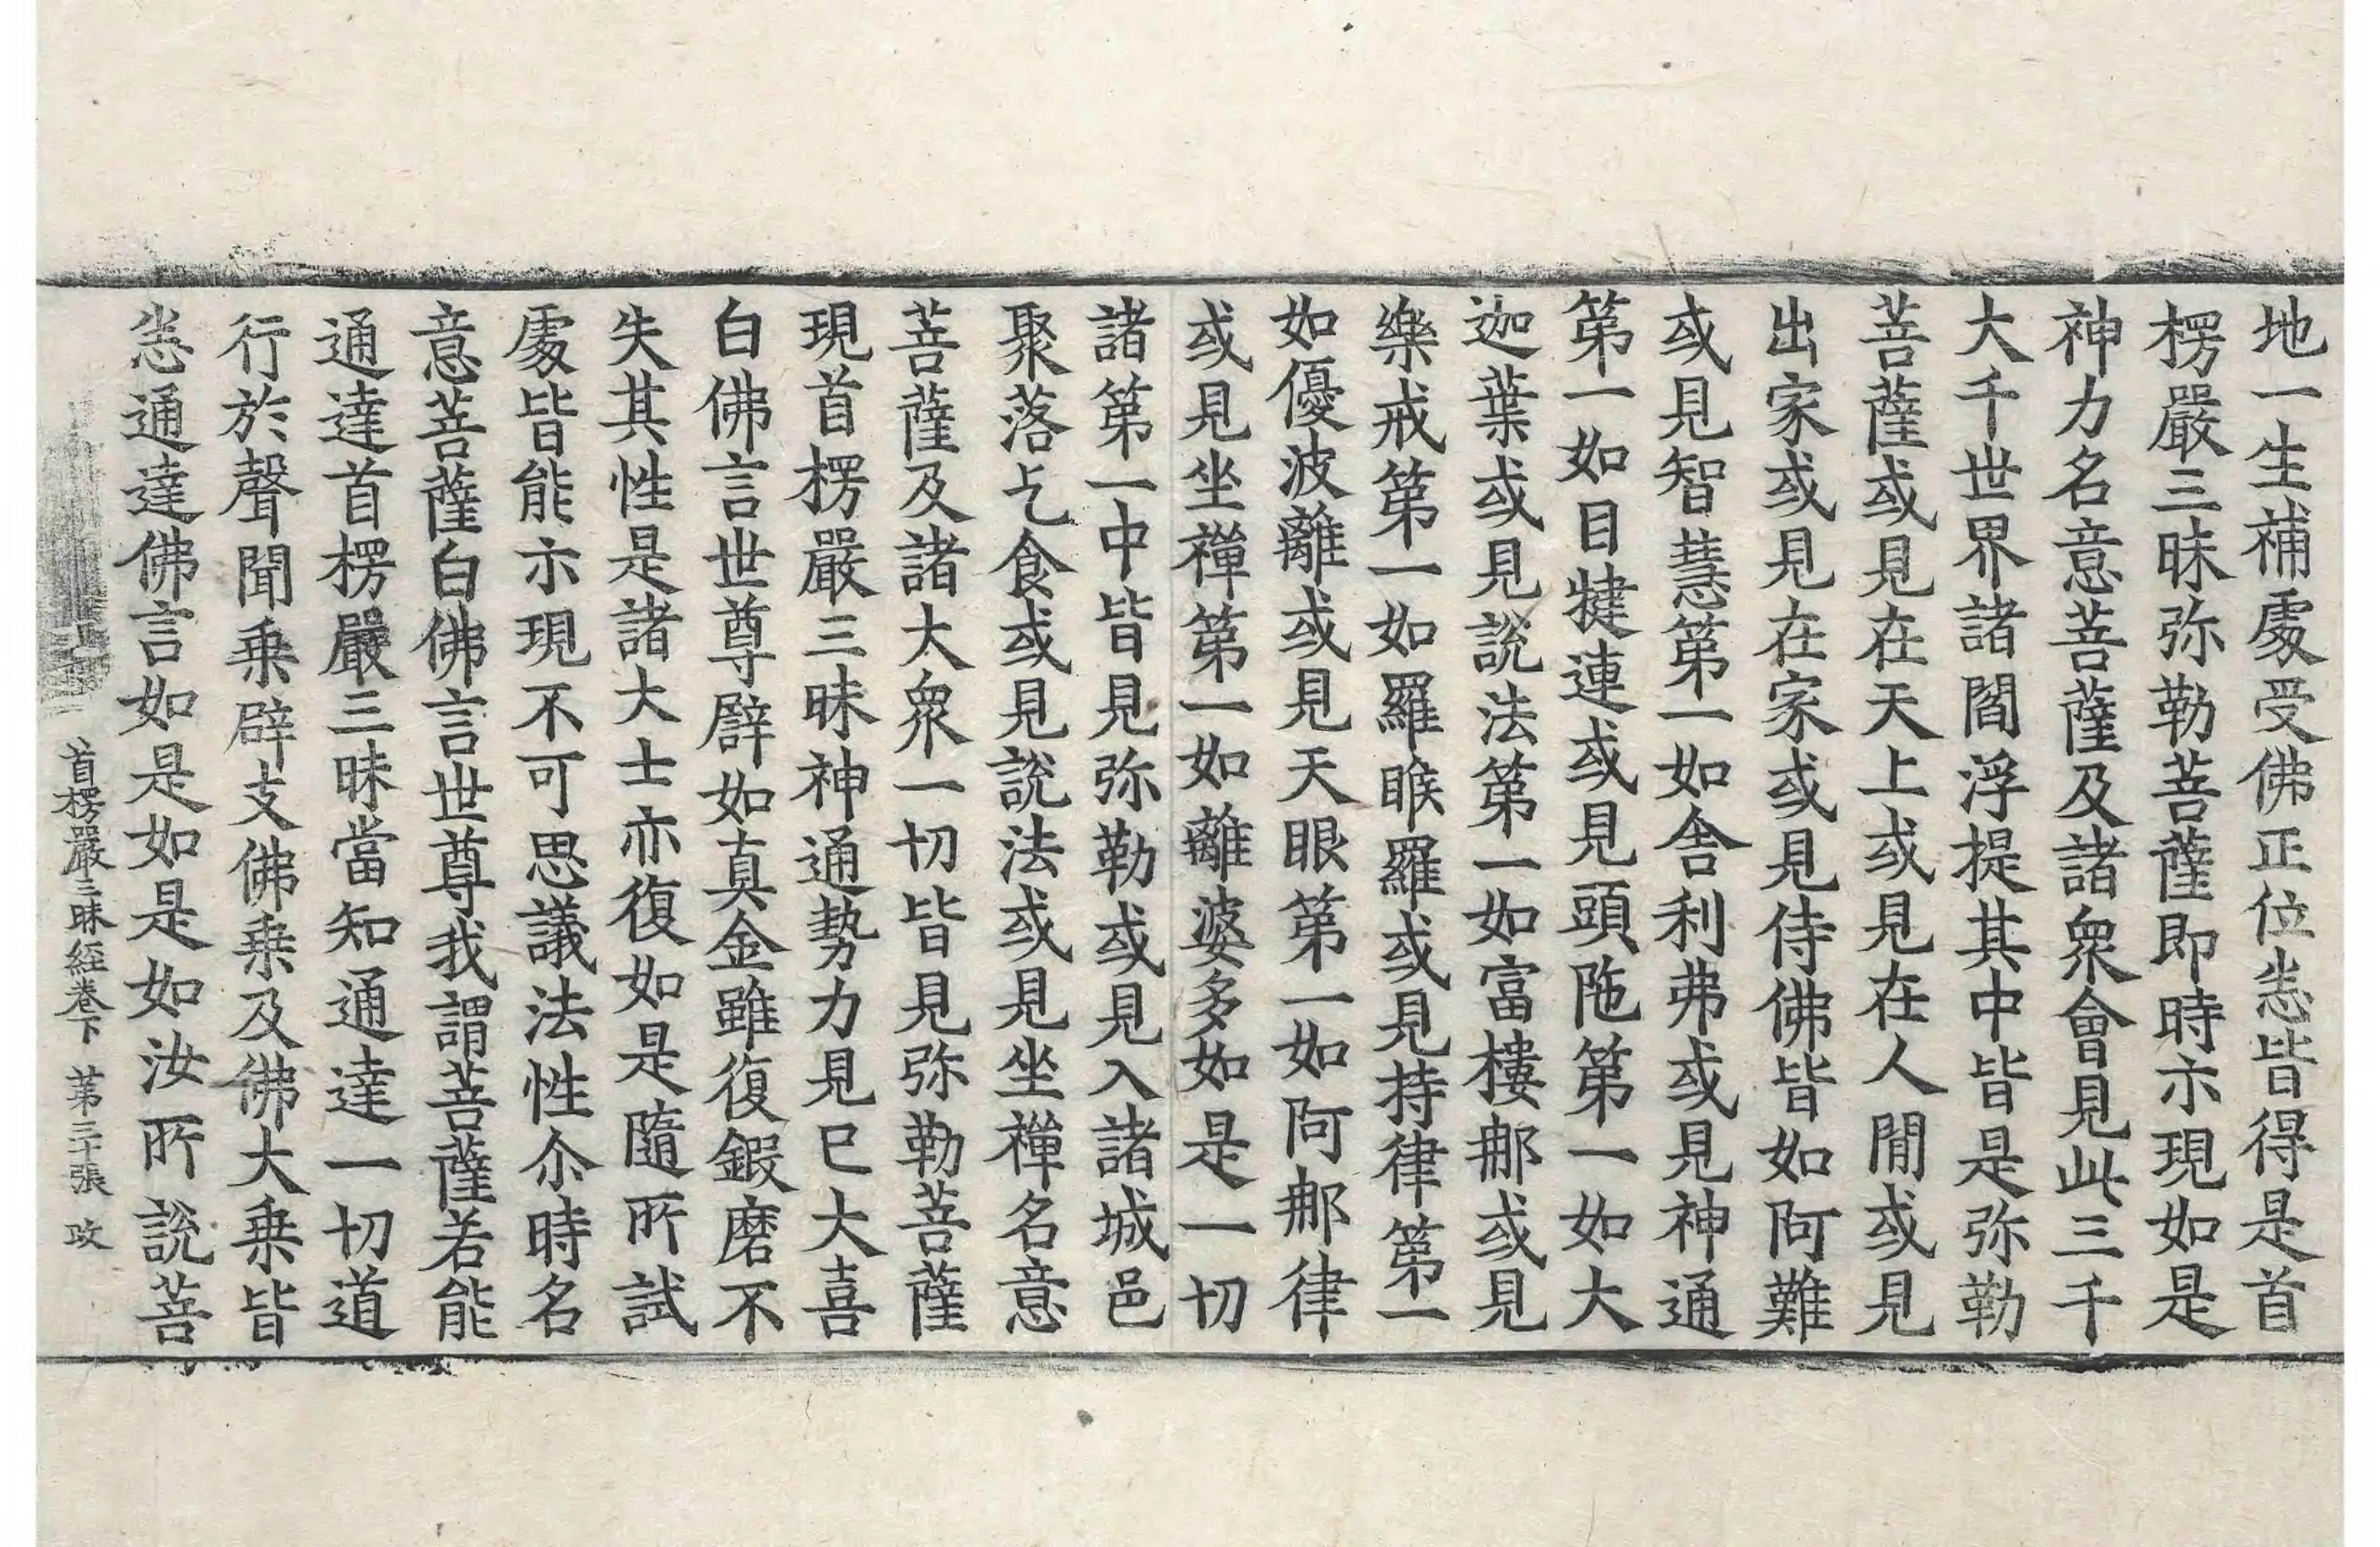 地一生補處受佛正位恙皆得是首
楞嚴三昧弥勒菩薩即時示現如是
神力名意菩薩及諸衆會見此三千
大千世界諸閻浮提其中皆是弥勒
菩薩或見在天上或見在人閒或見
出家或見在家或見侍佛皆如阿難
或見智慧第一如舍利弗或見神通
第一如目揵連或見頭陁第一如大
迦葉或見說法第一如富樓那或見
樂戒第一如羅睺羅或見持律第一
如優波離或見天眼第一如阿那律
或見坐禪第一如離婆多如是一切
諸第一中皆見弥勒或見入諸城邑
聚落乞食或見說法或見坐禪名意
菩薩及諸大衆一切皆見弥勒菩薩
現首楞嚴三昧神通勢力見已大喜
白佛言世尊譬如真金雖復鍜磨不
失其性是諸大士亦復如是隨所試
處皆能示現不可思議法性尒時名
意菩薩白佛言世尊我謂菩薩若能
通達首楞嚴三昧當知通達一切道
行於聲聞乗辟支佛乗及佛大乗皆
恙通達佛言如是如是如汝所說菩
首楞嚴三昧経卷下 苐三十張 改